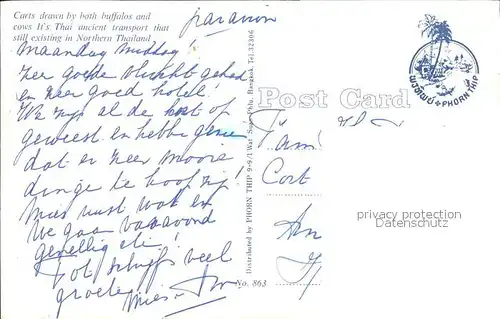 Carts drawn by both buffalos and
cows It's Thai ancient transport that
still existing in Northern Thailand
par avion
Maandag middag!
zeer goede vlucht gehad
en zeer goed hotel!
We zijn al de hort op
geweest en hebben gezien
dat er zeer mooie
dingen te koop zijn!
Mies rust wat en
We gaan vanavond
gezellig eten!
Tot schrijfs veel
groeten
Mies
Distributed by PHORN THIP 9-9/1 Wat Suan Phlu, Bangkok Tel.32806
No. 863
Post Card
พรทิพย์ PHORN THIP
Fam!
Cort
An
privacy protection
Datenschutz